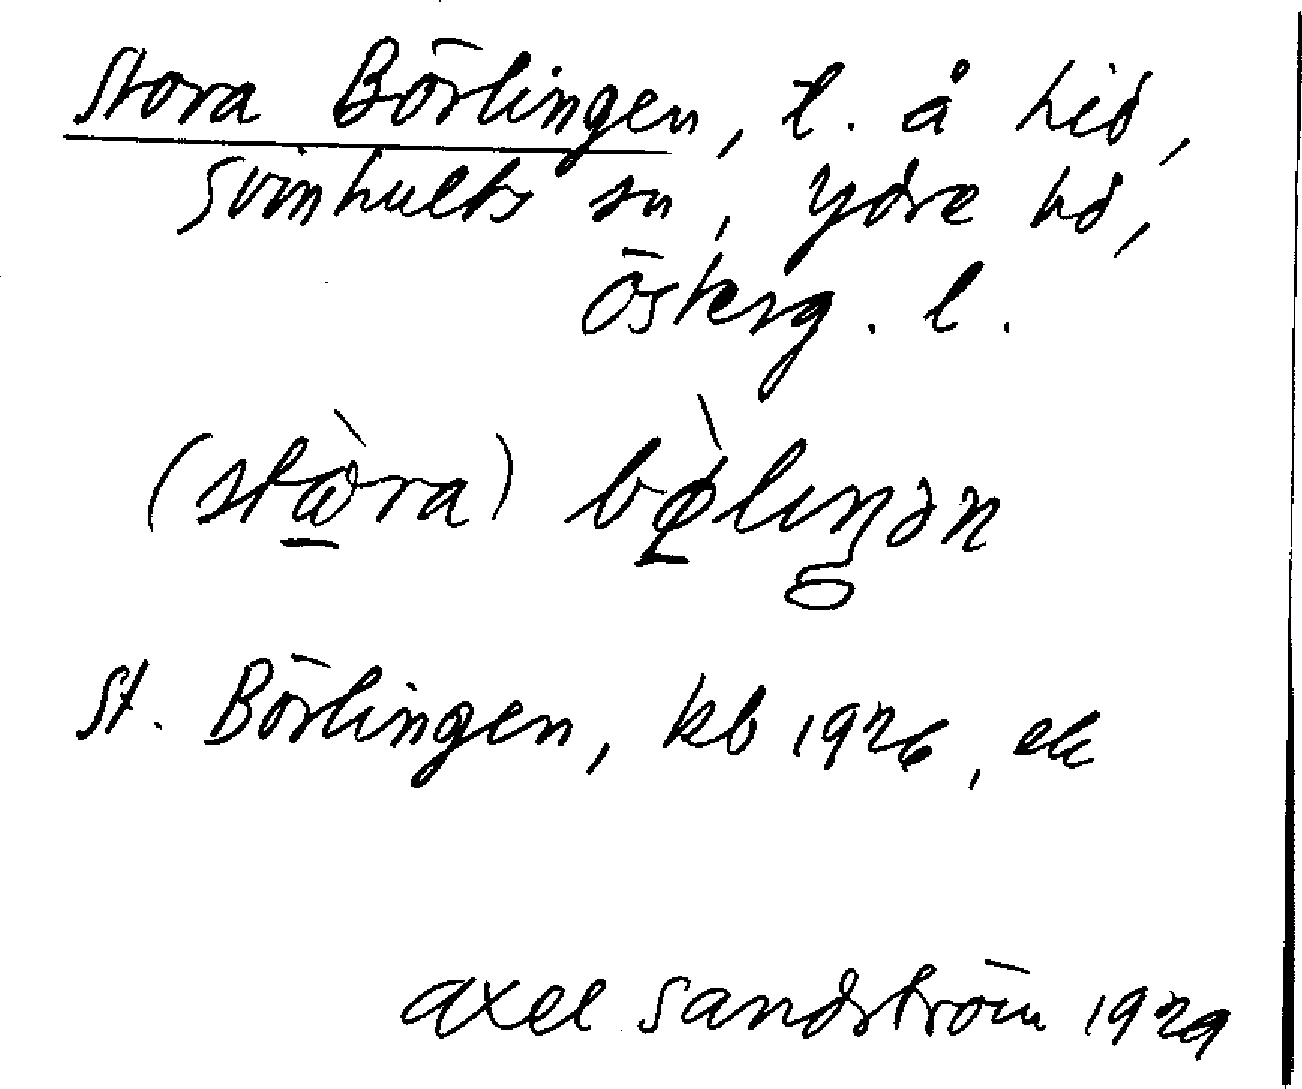 Stora Börlingen, t. å Hid,
Svinhults sn, Ydre hd,
Österg. l.
(stɷ̀ra) bø̀lıŋən
St. Börlingen, kb 1926, ek
Axel Sandström 1929